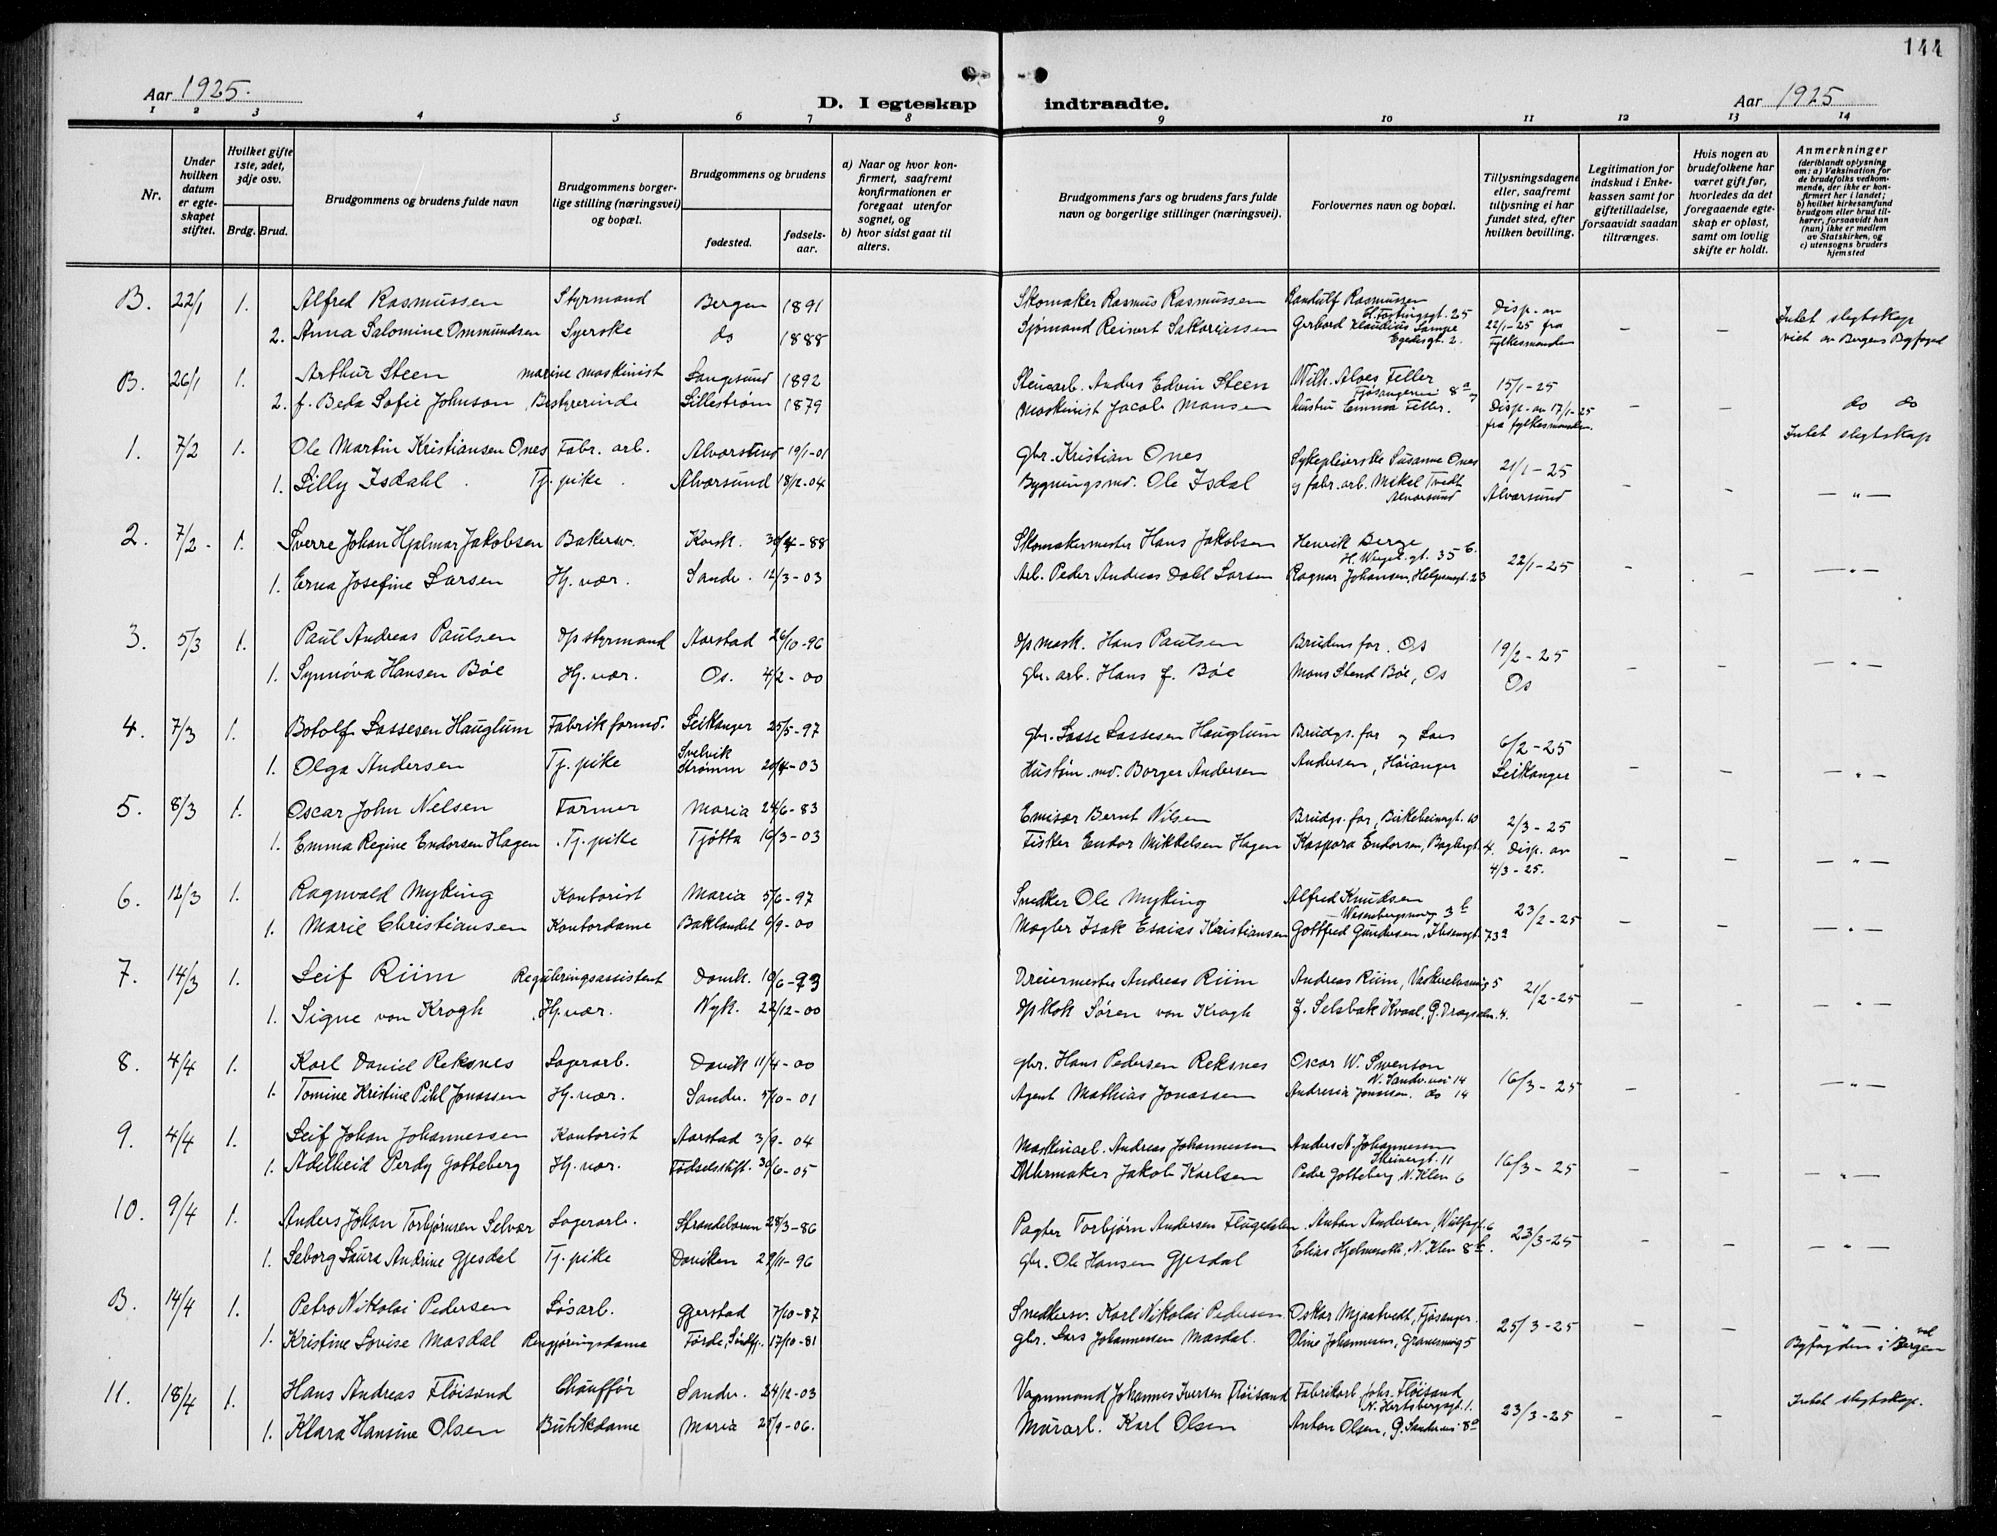 144
Aar 1925.
D. I egteskap indtraadte.
Aar 1925
1 2 3 4 5 6 7 8 9 10 11 12 13 14
Nr.
Under hvilken datum er egteskapet stiftet.
Hvilket gifte 1ste, 2det, 3dje osv.
Brdg. Brud.
Brudgommens og brudens fulde navn
Brudgommens borgerlige stilling (næringsvei) og bopæl.
Brudgommens og brudens
fødested.
fødselsaar.
a) Naar og hvor konfirmert, saafremt konfirmationen er foregaat utenfor sognet, og
b) hvor sidst gaat til alters.
Brudgommens fars og brudens fars fulde navn og borgerlige stillinger (næringsvei).
Forlovernes navn og bopæl.
Tillysningsdagene eller, saafremt tillysning ei har fundet sted, efter hvilken bevilling.
Legitimation for indskud i Enkekassen samt for giftetilladelse, forsaavidt saadan tiltrænges.
Hvis nogen av brudefolkene har været gift før, hvorledes da det foregaaende egteskap er opløst, samt om lovlig skifte er holdt.
Anmerkninger
(deriblandt oplysning om: a) Vaksination for de brudefolks vedkommende, der ikke er konfirmert her i landet; b) hvilket kirkesamfund brudgom eller brud tilhører, forsaavidt han (hun) ikke er medlem av Statskirken, og c) utensogns bruders hjemsted
B. 22/1 1. Alfred Rasmussen Styrmand Bergen 1891 Skomaker Rasmus Rasmussen Randulf Rasmussen Disp. av Intet slegtskap
2. Anna Salomine Ommundsen Syerske do 1888 Sjømand Reinert Sakariassen Gerhard Klaudius Lampe Egedesgt. 2. 22/1-25 fra Fylkesmanden – – viet av Bergens Byfoged
B. 26/1 1. Arthur Steen marine maskinist Langesund 1892 Stenarb. Anders Edvin Steen Wilh. Alves Feller 15/1-25
2. f. Beda Sofie Johnson Bestyrerinde Lillestrøm 1879 Maskinist Jacob Mansen hustru Emma Feller. Disp. av 17/1-25 fra fylkesmanden – – do do
1. 7/2 1. Ole Martin Kristiansen Ones Fabr. arb. Alversund 19/1-01 gbr. Kristian Ones Sykepleierske Susanne Ones 21/1-25 Intet slegtskap
1. Lilly Isdahl Tj. pike Alversund 18/12-04 Bygningsmd. Ole Isdal og fabr. arb. Mikal Tvedt Alversund Alversund – – – " –
2. 7/2 1. Sverre Johan Hjalmar Jakobsen Bakersv. Korsk. 30/4-88 Skomakermester Hans Jakobsen Henrik Berge H. Wergel. gt. 35 b. 22/1-25
1. Erna Josefine Larsen Hj. vær. Sandv. 12/3-03 Arb. Peder Andreas Dahl Larsen Ragnar Johansen, Helgesensgt. 23 – – – " –
3. 5/3 1. Paul Andreas Paulsen Dp styrmand Aarstad 26/10-96 Dp mask. Hans Paulsen Brudens far. Os 19/2-25
1. Synnöva Hansen Böe Hj. vær. Os. 4/2-00 gbr. arb. Hans J. Böe Mons Stend Böe, Os Os – – – " –
4. 7/3 1. Botolf Lassesen Hauglum Fabrik formd. Leikanger 25/5-97 gbr. Lasse Lassesen Hauglum Brudgs. far og Lars 6/2-25
1. Olga Andersen Tj. pike Svelvik Strømm 20/4-03 Hustøm. md. Borger Andersen Andersen, Höianger Leikanger – – – " –
5. 8/3 1. Oscar John Nelsen Farmer Maria 24/6-83 Emisær Bernt Nilsen Brudgs. far, Birkebeinergt. 10 2/3-25
1. Emma Regine Endorsen Hagen Tj. pike Tjøtta 16/3-03 Fisker Endor Mikkelsen Hagen Kaspora Endorsen, Baglergt. 4. Disp. av 4/3-25. – – – " –
6. 12/3 1. Ragnvald Myking Kontorist Maria 5/6-97 Snedker Ole Myking Alfred Knudsen 23/2-25
1. Marie Christiansen Kontordame Baklandet 6/9-00 Mægler Isak Esaias Kristiansen Gottfred Gundersen, Ibsensgt. 73 a – – – " –
7. 14/3 1. Leif Riim Reguleringsassistent Domk. 10/6-93 Dreiermester Andreas Riim Andreas Riim, Vaskerelvsmug 5 21/2-25
1. Signe von Krogh Hj. vær. Nyk. 22/12-00 Dp kok Søren von Krogh f. Selsbak Kvaal, 4. – – – " –
8. 4/4 1. Karl Daniel Reksnes Lagerarb. Davik 11/4-00 gbr. Hans Pedersen Reksnes Oscar W. Swenson N. Sandv. vei 14 16/3-25
1. Tomine Kristine Pihl Jonassen Hj. vær. Sandv. 5/10-01 Agent Mathias Jonassen Andresia Jonassen. do 14 – – – " –
9. 4/4 1. Leif Johan Johannessen Kontorist Aarstad 3/9-04 Maskinarb. Andreas Johannessen Anders N. Johannessen Steinergt. 11 16/3-25
1. Adelheid Perdy Gotteberg Hj. vær. Fødselsstift. 30/6-05 Uhrmaker Jakob Karlsen Peder Gotteberg N. Klev 6 – – – " –
10. 9/4 1. Anders Johan Torbjørnsen Selvær Lagerarb. Strandebarm 28/3-86 Pagter Torbjörn Andersen Flugedalen Anton Andersen, 6 23/3-25
1. Seborg Laura Andrine Gjesdal Tj. pike Daviken 29/11-96 gbr. Ole Hansen Gjesdal Elias Hjelmeseth, N. Klev 8 b. – – – " –
B. 14/4 1. Petro Nikolai Pedersen Løsarb. Gjerstad 7/10-87 Snedkersv. Karl Nikolai Pedersen Oskar Mjaatvedt, Fjøsanger. 25/3-25 – " – ved
1. Kristine Lovise Masdal Rengjøringsdame Førde, Söndfj. 17/10-81 gbr. Lars Johannessen Masdal. Oline Johannessen, 5 – – Byfogden i Bergen
11. 18/4 1. Hans Andreas Flöisand Chauffør Sandv. 24/12-03 Vognmand Johannes Iversen Flöisand Fabrikarb. Johs. Flöisand N. Hertsbergsgt. 1. 23/3-25 Intet slegtskap.
1. Klara Hansine Olsen Butikdame Maria 25/9-06. Murarb. Karl Olsen Anton Olsen, 8 a – –